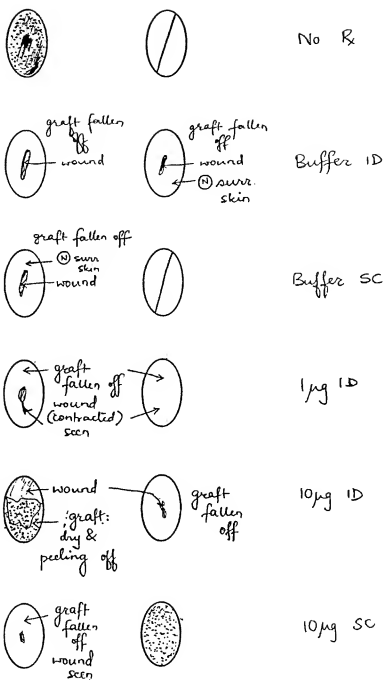 No ℞
graft fallen
off
wound
graft fallen
off
wound
Ⓝ surr.
skin
Buffer ID
graft fallen off
Ⓝ surr
skin
wound
Buffer SC
graft
fallen off
wound
(contracted)
seen
1 µg ID
wound
graft:
dry &
peeling off
graft
fallen
off
10 µg ID
graft
fallen
off
wound
seen
10 µg SC